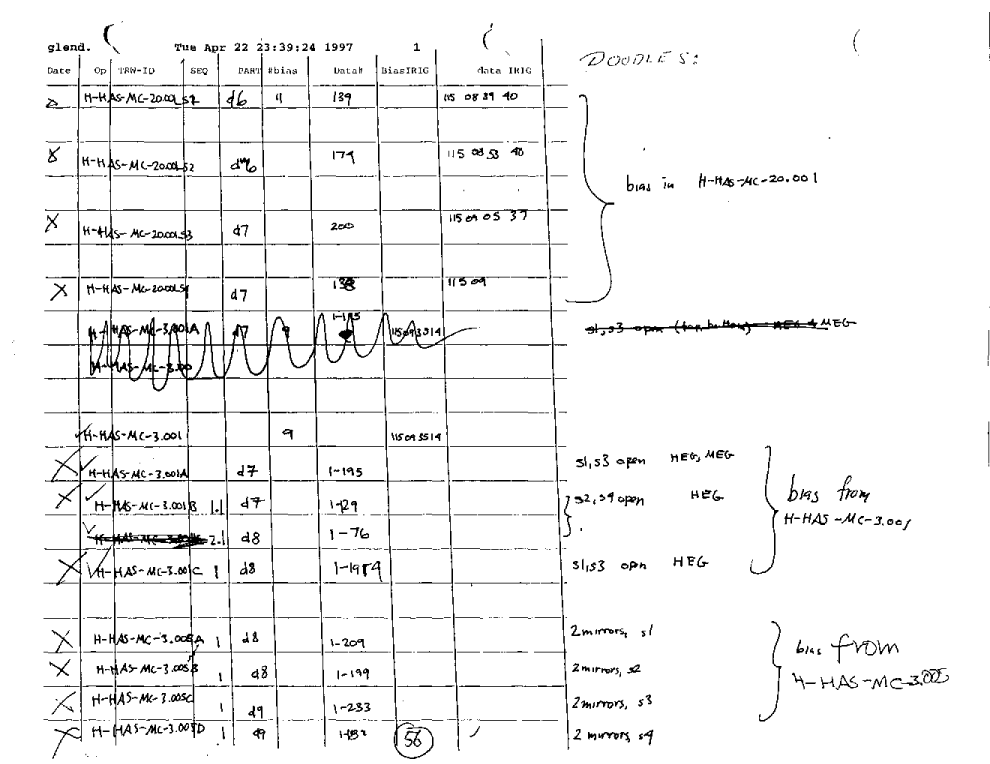 glend. Tue Apr 22 23:39:24 1997 1
DOODLES:
Date Op TRW-ID SEQ PART #bias Data# BiasIRIG data IRIG
H-HAS-MC-20.001S2 d6 11 139 115 08 39 40
X H-HAS-MC-20.001S2 d6 179 115 08 53 48
bias in H-HAS-MC-20.001
X H-HAS-MC-20.001S3 d7 200 115 09 05 37
X H-HAS-MC-20.001S4 d7 138 115 09
H-HAS-MC-3.001A d7 9 115093514
s1,s3 open MEG
H-HAS-MC-3.00
H-HAS-MC-3.001 9 115093514
X H-HAS-MC-3.001A d7 1-195 s1,s3 open HEG, MEG
X H-HAS-MC-3.001B 1.1 d7 1-129 s2,s4 open HEG
bias from
H-HAS-MC-3.001
2.1 d8 1-76
X H-HAS-MC-3.001C 1 d8 1-1984 s1,s3 open HEG
X H-HAS-MC-3.005A 1 d8 1-209 2 mirrors, s1
bias from
H-HAS-MC-3.005
X H-HAS-MC-3.005B 1 d8 1-199 2 mirrors, s2
X H-HAS-MC-3.005C 1 d9 1-233 2 mirrors, s3
X H-HAS-MC-3.005D 1 d9 56 2 mirrors, s4